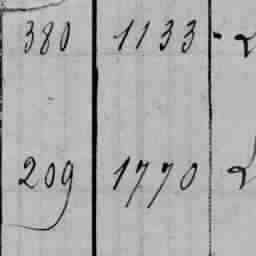 380 1133
209 1770